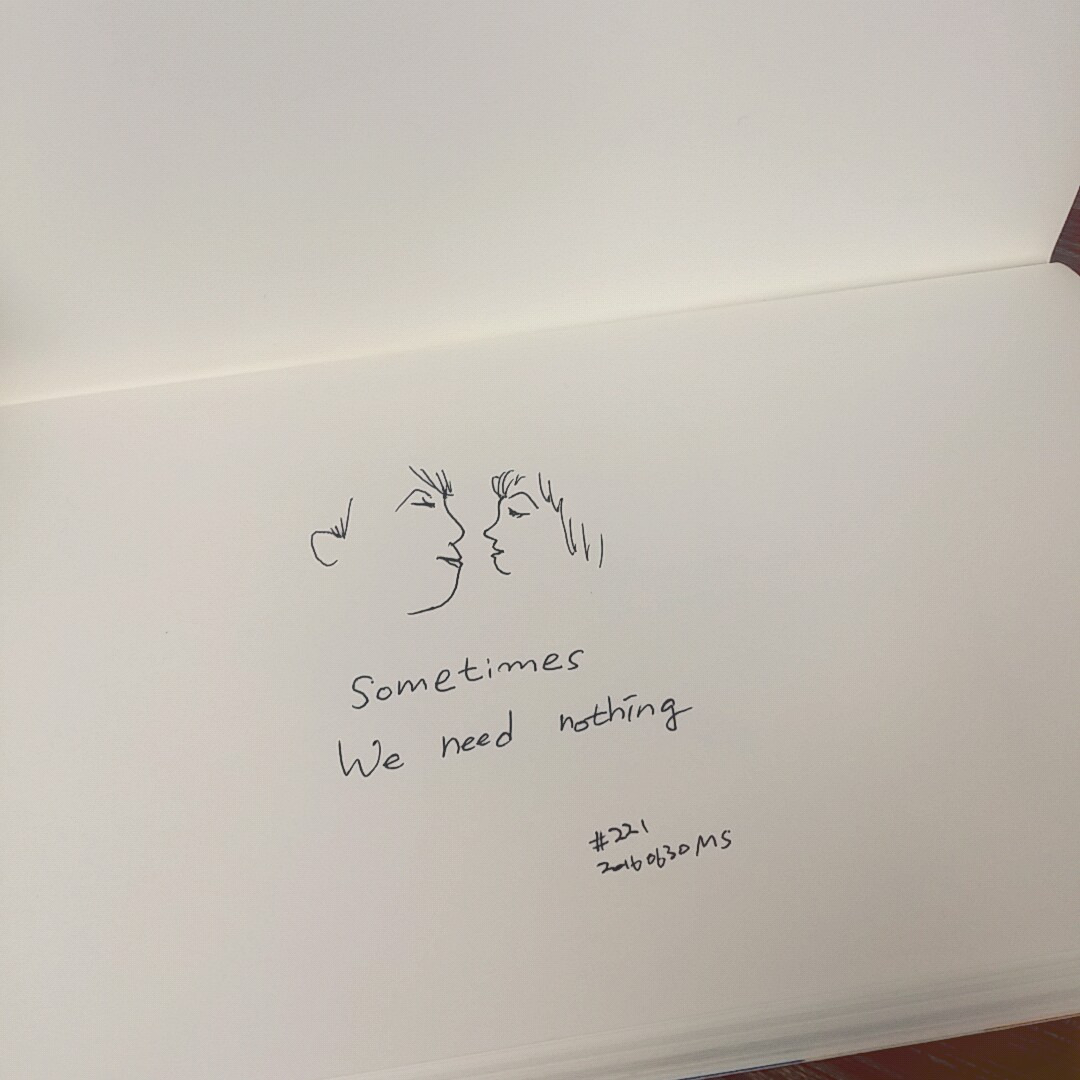 Sometimes
We need nothing
#221
20160630 MS